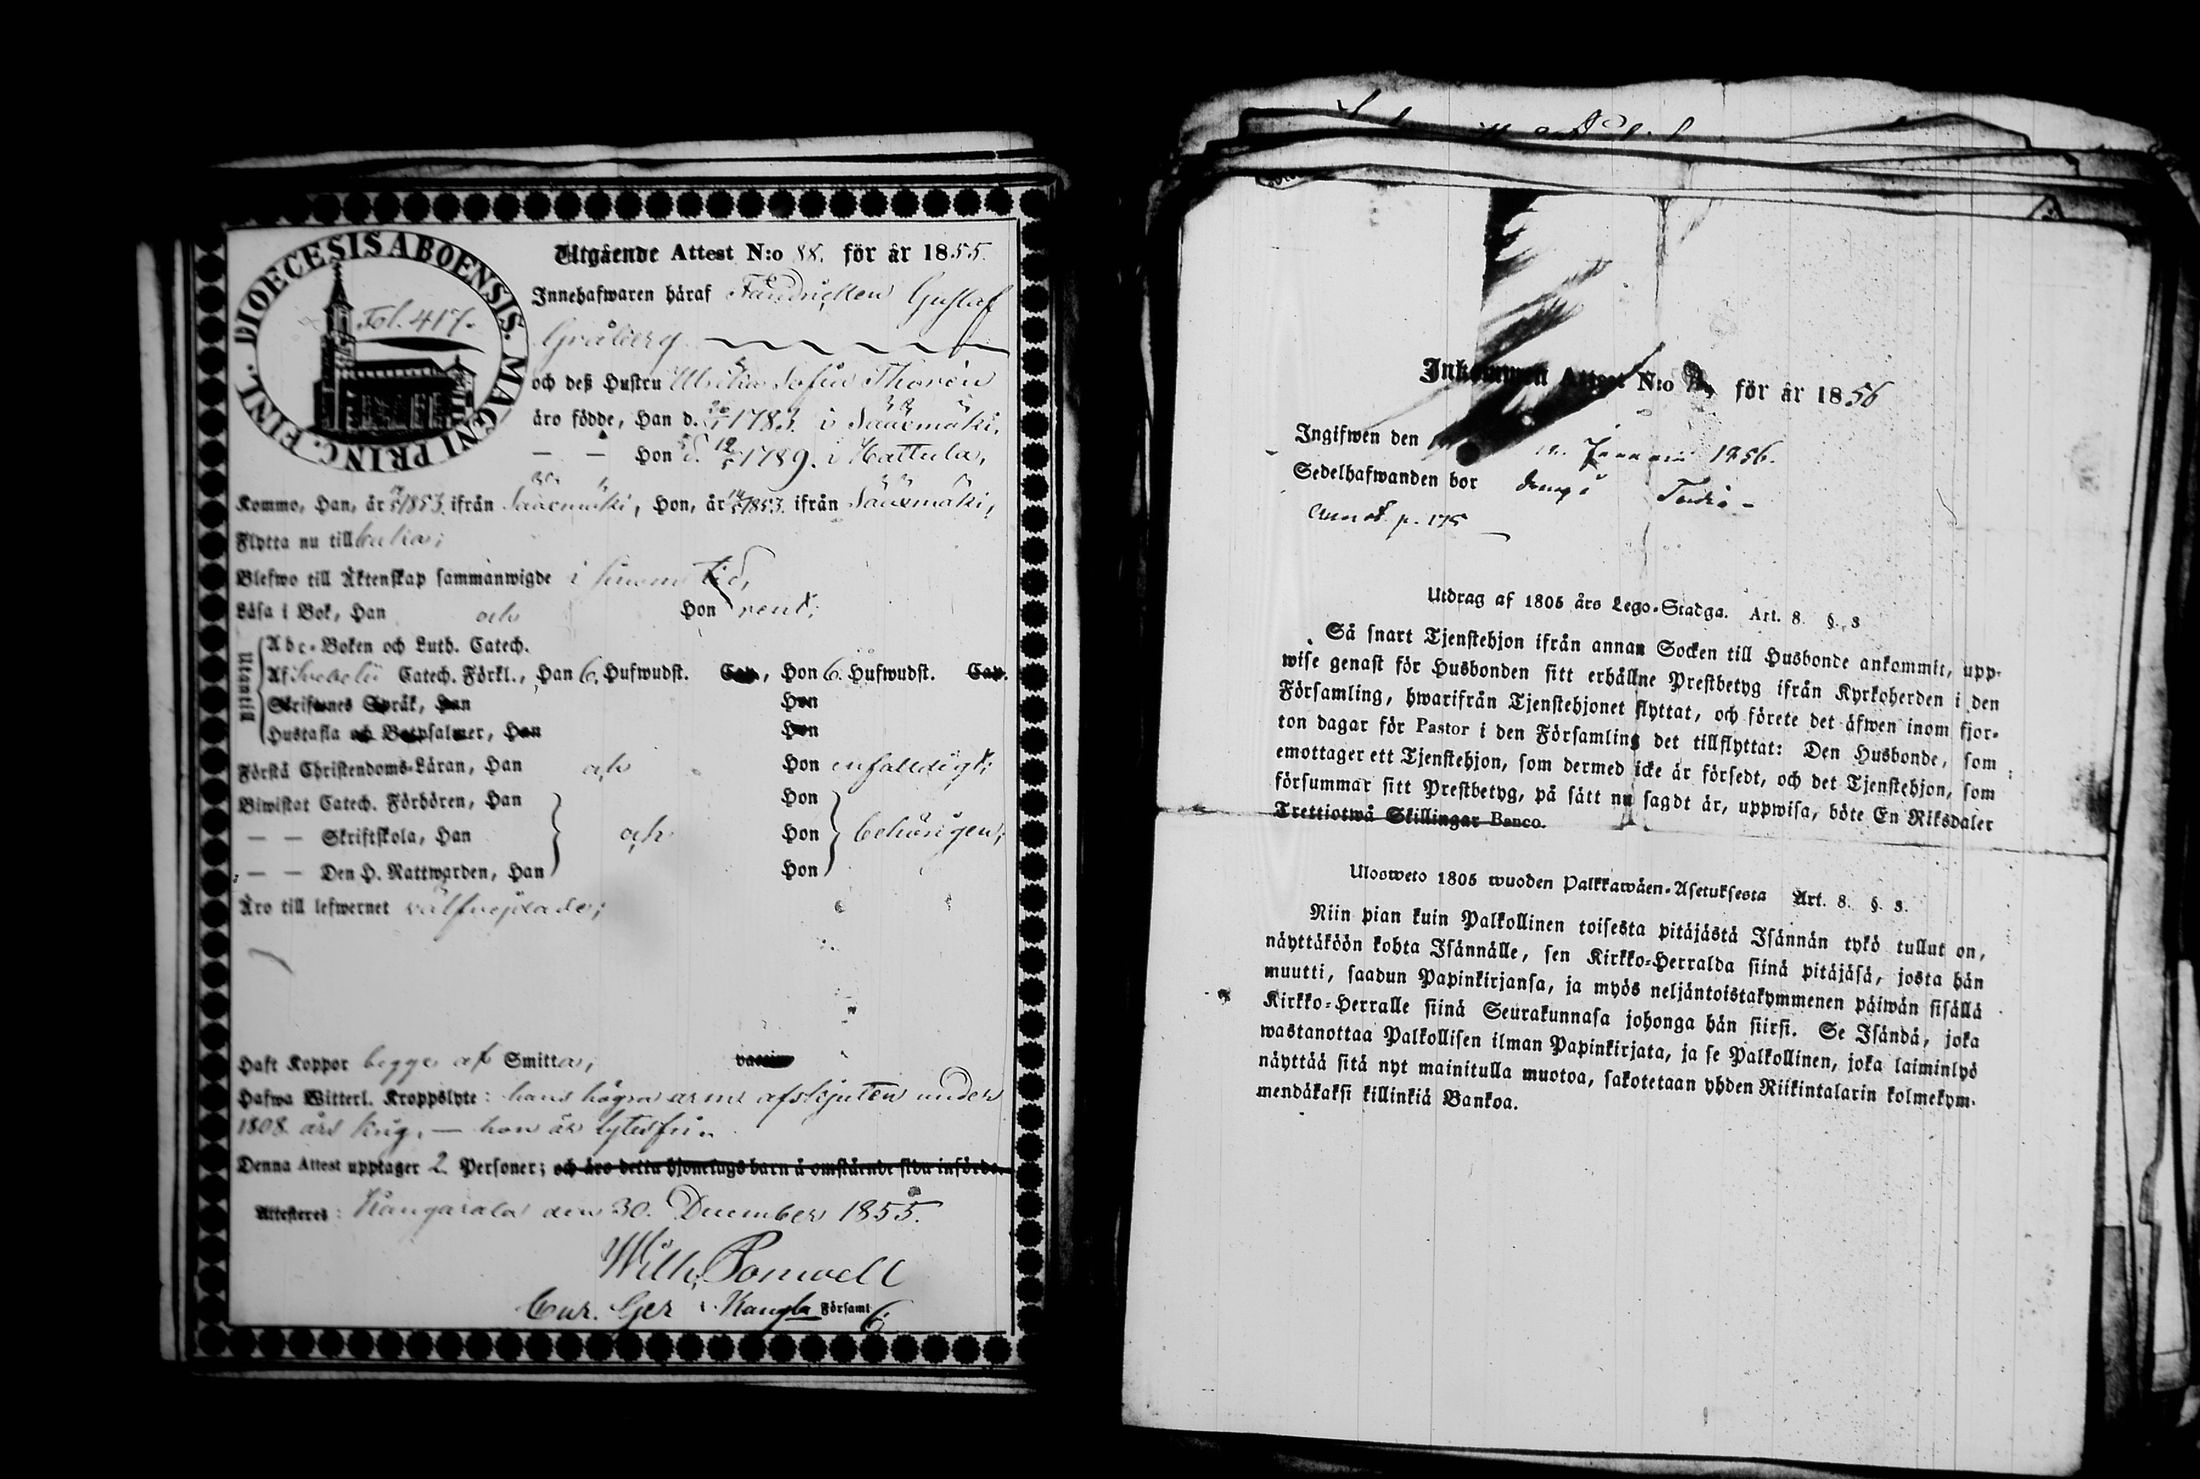 DIOECESIS ABOENSIS. MAGNI PRINC. FINL.
Fol. 417.
Utgående Attest N:o 88. för år 1855.
Innehafwaren häraf Fändricken Gustaf
Gråberg
och deß Hustru Sofia Thorén
äro födde, Han d. 1783. i Sääxmäki,
— — Hon d. 1789. i Hattula,
Kommo, Han, år 1853. ifrån Sääxmäki, Hon, år 1853. ifrån Sääxmäki,
Flytta nu till
Blefwo till Äktenskap sammanwigde i sinom tid,
Läsa i Bok, Han och Hon rent;
Utantill
Abc-Boken och Luth. Catech.
Af Svebelii Catech. Förkl., Han 6. Hufwudst. Cap., Hon 6. Hufwudst. Cap.
Skriftenes Språk, Han Hon
Hustafla och Botpsalmer, Han Hon
Förstå Christendoms-Läran, Han och Hon enfaldigt;
Biwistat Catech. Förhören, Han Hon
— — Skriftskola, Han och Hon behörigen;
— — Den H. Nattwarden, Han Hon
Äro till lefwernet välfrejdade;
Haft Koppor begge af Smitta;
Hafwa Witterl. Kroppslyte: hans högra arm afskjuten under
1808 års krig, — hon är lytesfri.
Denna Attest upptager 2 Personer; och äro detta hjonelags barn å omstående sida införde.
Attesteres: Kangasala den 30. December 1855.
Wilh.
Cur. Ger i Kangla Församl
6
Inkommen Attest N:o för år 1856
Ingifwen den Januarii 1856.
Sedelhafwanden bor
p. 175
Utdrag af 1805 års Lego-Stadga. Art. 8. §. 3
Så snart Tjenstehjon ifrån annan Socken till Husbonde ankommit, upp-
wise genast för Husbonden sitt erhållne Prestbetyg ifrån Kyrkoherden i den
Församling, hwarifrån Tjenstehjonet flyttat, och förete det äfwen inom fjor-
ton dagar för Pastor i den Församling det tillflyttat: Den Husbonde, som
emottager ett Tjenstehjon, som dermed icke är försedt, och det Tjenstehjon, som
försummar sitt Prestbetyg, på sätt nu sagdt är, uppwisa, böte En Riksdaler
Trettiotwå Skillingar Banco.
Ulosweto 1805 wuoden Palkkawäen-Asetuksesta Art. 8. §. 3.
Niin pian kuin Palkollinen toisesta pitäjästä Isännän tykö tullut on,
näyttäköön kohta Isännälle, sen Kirkko-Herralda siinä pitäjäsä, josta hän
muutti, saadun Papinkirjansa, ja myös neljäntoistakymmenen päiwän sisällä
Kirkko-Herralle siinä Seurakunnasa johonga hän siirsi. Se Isändä, joka
wastanottaa Palkollisen ilman Papinkirjata, ja se Palkollinen, joka laiminlyö
näyttää sitä nyt mainitulla muotoa, sakotetaan yhden Riikintalarin kolmekym-
mendäkaksi killinkiä Bankoa.